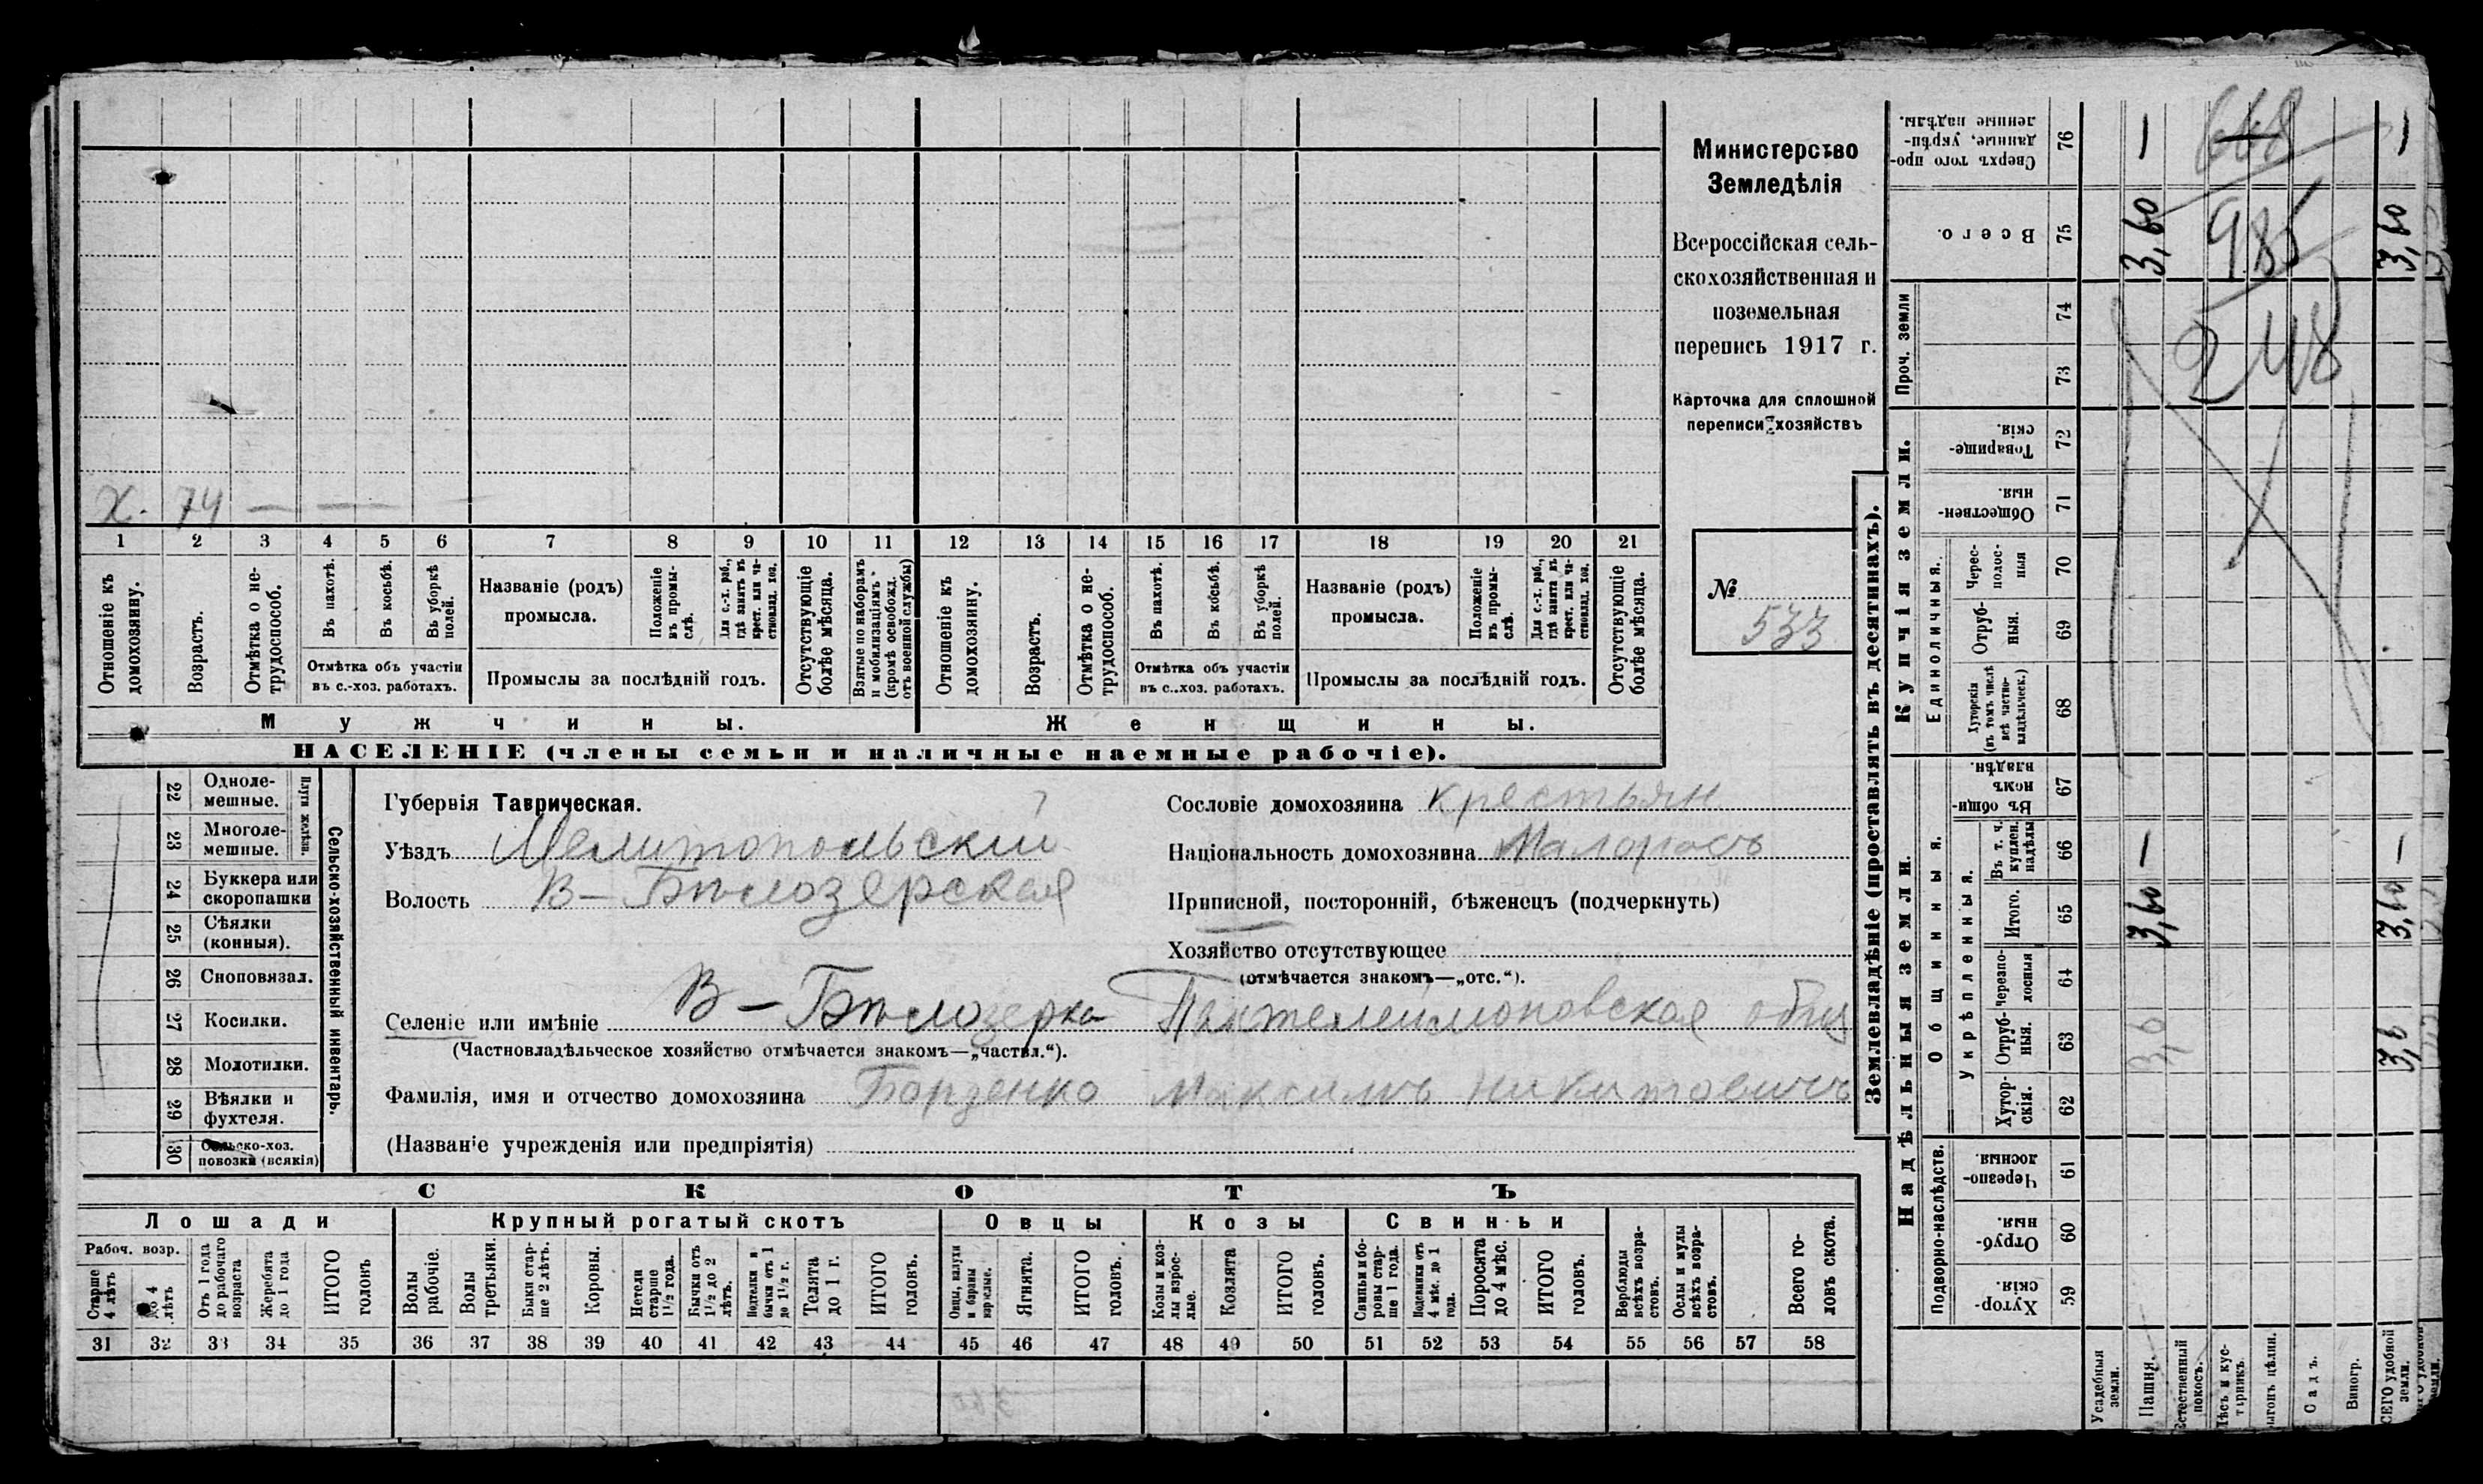 Х. 74 — —
1 2 3 4 5 6 7 8 9 10 11 12 13 14 15 16 17 18 19 20 21
Отношеніе къ домохозяину.
Возрастъ.
Отмѣтка о нетрудоспособ.
Въ пахотѣ.
Въ косьбѣ.
Въ уборкѣ полей.
Отмѣтка объ участіи
въ с.-хоз. работахъ.
Названіе (родъ)
промысла.
Положеніе въ промыслѣ.
Для с.-х. раб., гдѣ занятъ въ крест. или частновлад. хоз.
Промыслы за послѣдній годъ.
Отсутствующіе болѣе мѣсяца.
Взятые по наборамъ и мобилизаціямъ (кромѣ освобожд. отъ военной службы)
Отношеніе къ домохозяину.
Возрастъ.
Отмѣтка о нетрудоспособ.
Въ пахотѣ.
Въ косьбѣ.
Въ уборкѣ полей.
Отмѣтка объ участіи
въ с.-хоз. работахъ.
Названіе (родъ)
промысла.
Положеніе въ промыслѣ.
Для с.-х. раб., гдѣ занята въ крест. или частновлад. хоз.
Промыслы за послѣдній годъ.
Отсутствующіе болѣе мѣсяца.
Мужчины. Женщины.
НАСЕЛЕНІЕ (члены семьи и наличные наемные рабочіе).
Министерство
Земледѣлія
Всероссійская сель-
скохозяйственная и
поземельная
перепись 1917 г.
Карточка для сплошной
переписи хозяйствъ
№
533
22 Одноле-
мешные.
23 Многоле-
мешные.
Плуги желѣзн.
24 Буккера или
скоропашки
25 Сѣялки
(конныя).
26 Сноповязал.
27 Косилки.
28 Молотилки.
29 Вѣялки и
фухтеля.
30 Сельско-хоз.
повозки (всякія)
Сельско-хозяйственный инвентарь.
Губернія Таврическая.
Уѣздъ Мелитопольскій
Волость В-Бѣлозерская
Селеніе или имѣніе В-Бѣлозерка Пантелеймоновская общ
(Частновладѣльческое хозяйство отмѣчается знакомъ—„частвл.“).
Фамилія, имя и отчество домохозяина Борзенко Максимъ Никитовичъ
(Названіе учрежденія или предпріятія)
Сословіе домохозяина крестьян
Національность домохозяина Малоросъ
Приписной, посторонній, бѣженецъ (подчеркнуть)
Хозяйство отсутствующее
(отмѣчается знакомъ—„отс.“).
СКОТЪ
Лошади Крупный рогатый скотъ Овцы Козы Свиньи
Рабоч. возр.
Старше 4 лѣтъ
до 4 лѣтъ
Отъ 1 года до рабочаго возраста
Жеребята до 1 года
ИТОГО головъ
Волы рабочіе.
Волы третьяки.
Быки старше 2 лѣтъ.
Коровы.
Нетели старше 1½ года.
Бычки отъ 1½ до 2 лѣтъ.
Подтелки и бычки отъ 1 до 1½ г.
Телята до 1 г.
ИТОГО головъ.
Овцы, валухи и бараны взрослые.
Ягнята.
ИТОГО головъ.
Козы и козлы взрослые.
Козлята
ИТОГО головъ.
Свиньи и боровы старше 1 года.
Подсвинки отъ 4 мѣс. до 1 года.
Поросята до 4 мѣс.
ИТОГО головъ.
Верблюды всѣхъ возрастовъ.
Ослы и мулы всѣхъ возрастовъ.
Всего головъ скота.
31 32 33 34 35 36 37 38 39 40 41 42 43 44 45 46 47 48 49 50 51 52 53 54 55 56 57 58
Землевладѣніе (проставлять въ десятинахъ).
Надѣльныя земли.
Купчія земли.
Проч. земли
Подворно-наслѣдств.
Общинныя.
Укрѣпленныя.
Единоличныя.
Хуторскія. 59
Отрубныя. 60
Черезполосныя. 61
Хуторскія. 62
Отрубныя. 63
Черезполосныя 64
Итого. 65
Въ т. ч. куплен. надѣлы 66
Въ общинномъ владѣн. 67
Хуторскія (въ томъ числѣ всѣ частновладѣльческ.) 68
Отрубныя. 69
Чересполосныя 70
Общественныя. 71
Товарищескія. 72
73
74
Всего. 75
Сверхъ того проданные, укрѣпленные надѣлы. 76
Усадебныя земли.
Пашня.
Естественный покосъ.
Лѣсъ и кустарникъ.
Выгонъ цѣлин.
Садъ.
Виногр.
ВСЕГО удобной земли.
3,6 3,60 — 3,60 —
3,6 3,60 — 3,60 —
668
985
248